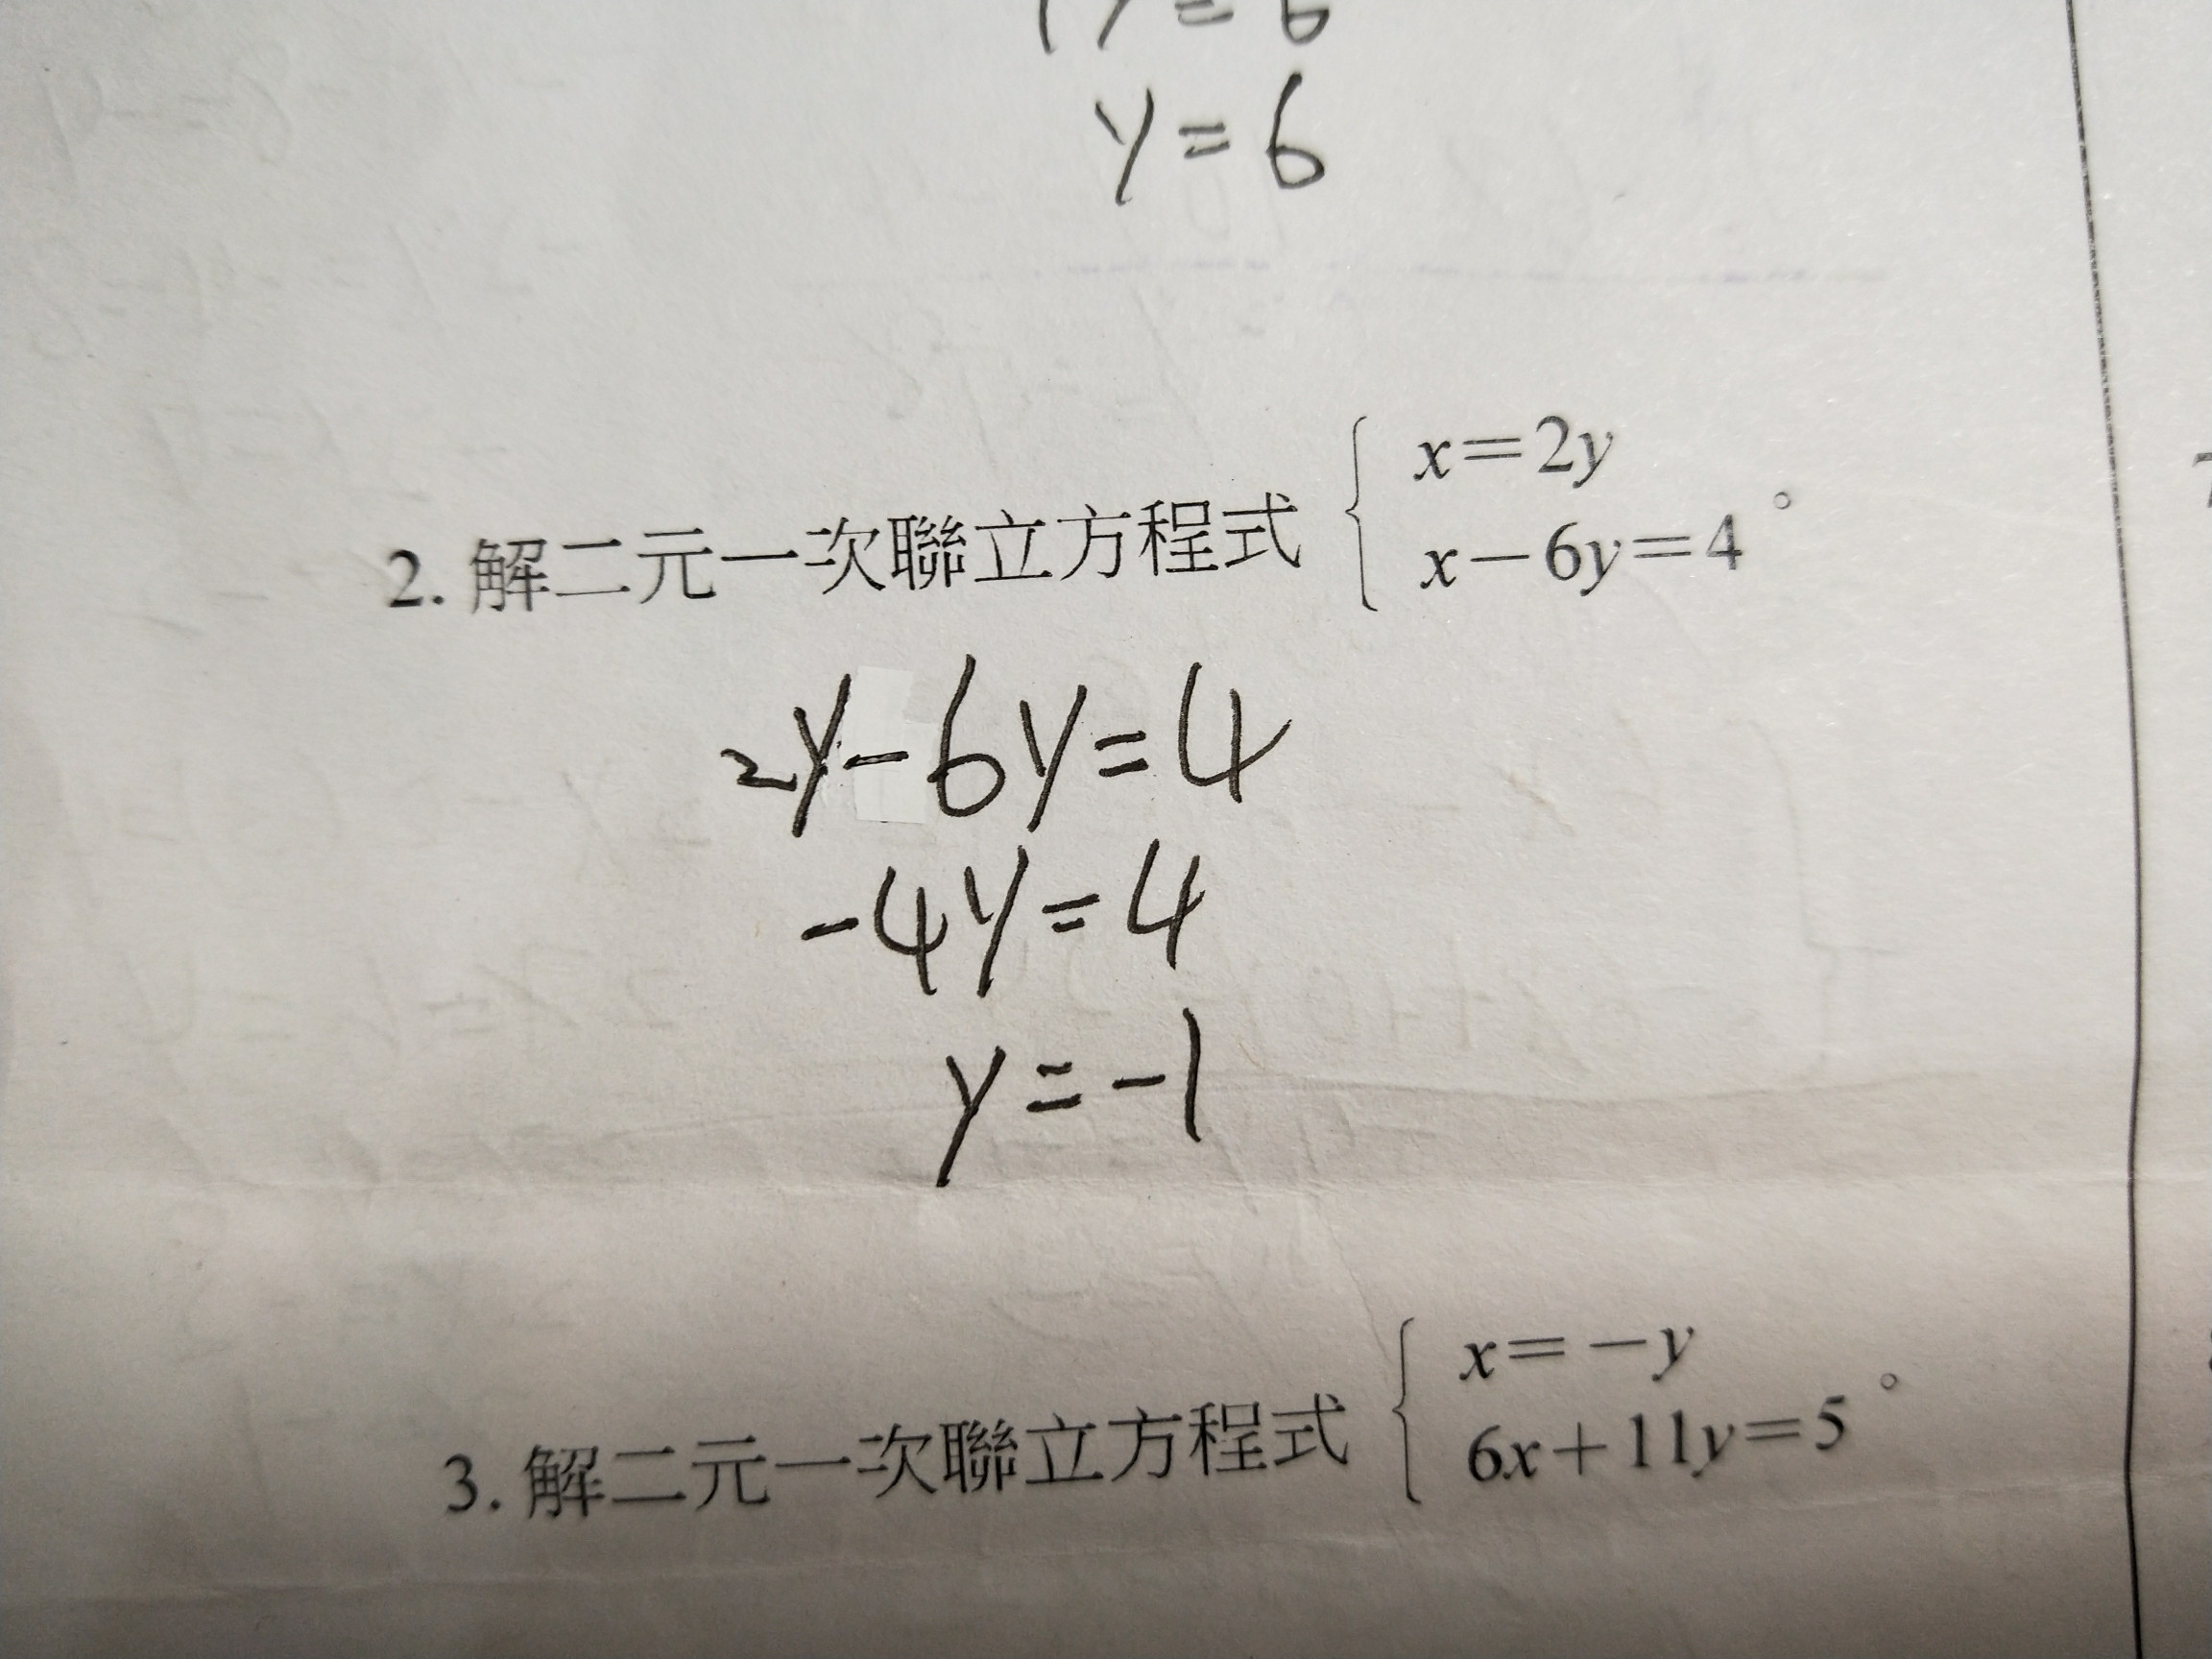 y=6
2. 解二元一次聯立方程式 { x=2y
x-6y=4 。
2y-6y=4
-4y=4
y=-1
3. 解二元一次聯立方程式 { x=-y
6x+11y=5 。